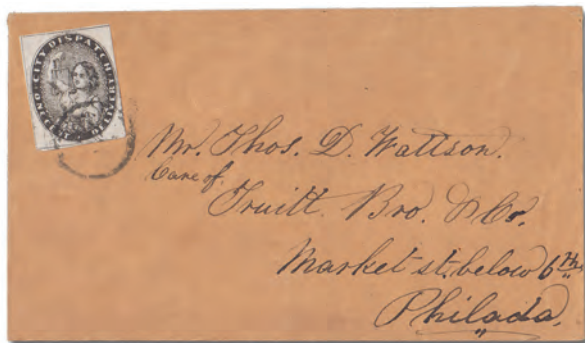 CITY DISPATCH PHILADA. ONE CENT
Mr. Thos. D. Wattson.
Care of
Truitt. Bro. & Co.
Market st. below 6th
Philada.